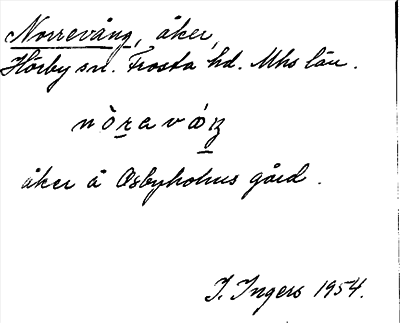 Norrevång, åker,
Hörby sn. Frosta hd. Mhs län.
nòravǻŋ
åker å Osbyholms gård.
I. Ingers 1954.